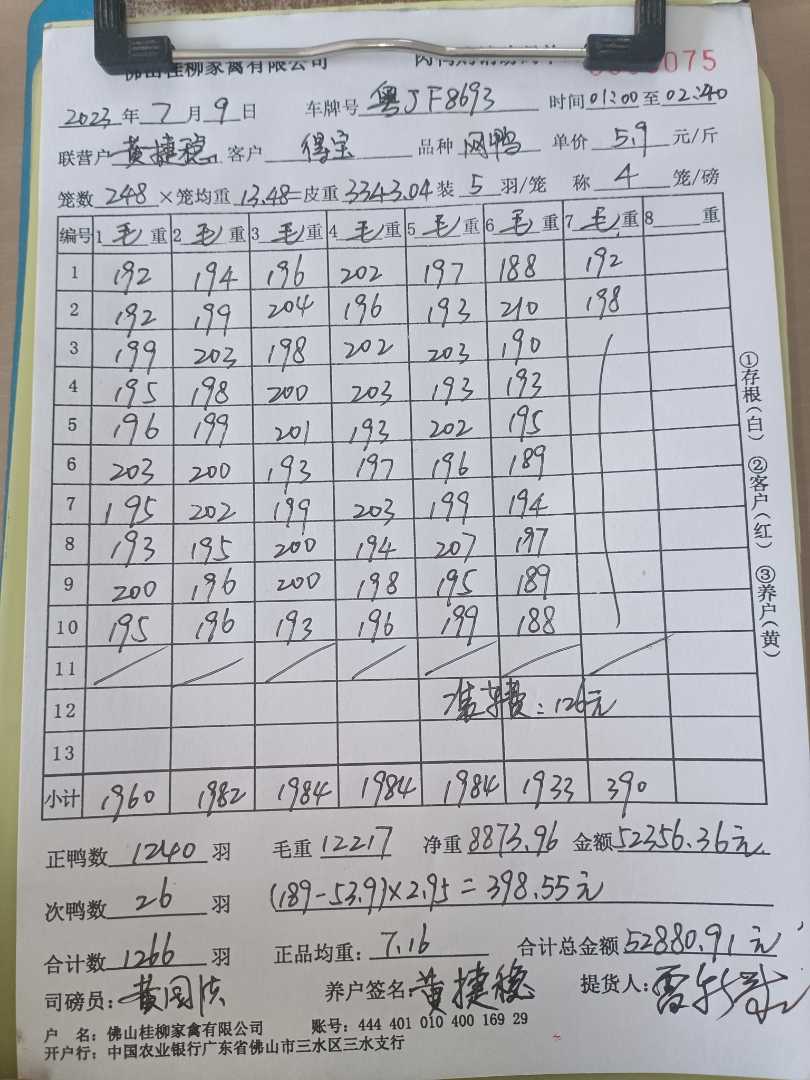 佛山桂柳家禽有限公司 075
2023年7月9日 车牌号 粤JF8693 时间01:00至02:40
联营户 黄捷稳 客户 得宝 品种 网鸭 单价 5.9 元/斤
笼数 248 ×笼均重 13.48=皮重 3343.04 装 5 羽/笼 称 4 笼/磅
编号 1 毛 重 2 毛 重 3 毛 重 4 毛 重 5 毛 重 6 毛 重 7 毛 重 8 重
1 192 194 196 202 197 188 192
2 192 199 204 196 193 210 198
3 199 203 198 202 203 190
4 195 198 200 203 193 193
5 196 199 201 193 202 195
6 203 200 193 197 196 189
7 195 202 199 203 199 194
8 193 195 200 194 207 197
9 200 196 200 198 195 189
10 195 196 193 196 199 188
11
12 装车费：126元
13
小计 1960 1982 1984 1984 1984 1933 390
正鸭数 1240 羽 毛重 12217 净重 8873.96 金额 52356.36元
次鸭数 26 羽 (189-53.9)×2.95=398.55元
合计数 1266 羽 正品均重: 7.16 合计总金额 52880.91元
司磅员: 黄国 养户签名: 黄捷稳 提货人:
户 名: 佛山桂柳家禽有限公司 账号: 444 401 010 400 169 29
开户行: 中国农业银行广东省佛山市三水区三水支行
①存根(白) ②客户(红) ③养户(黄)